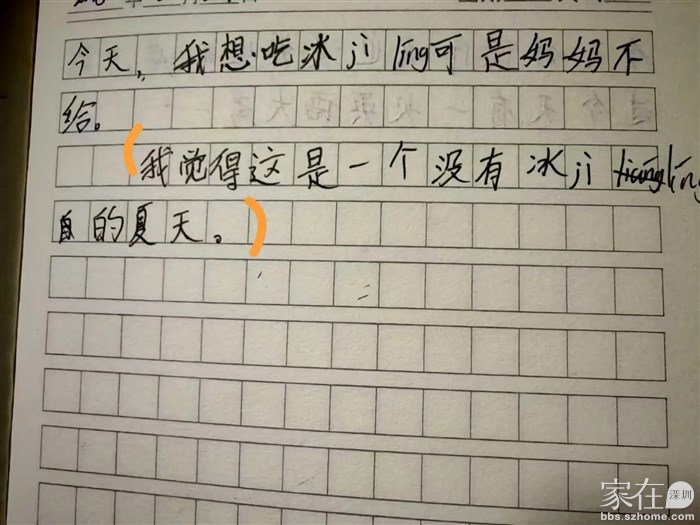 今天,我想吃冰jī líng可是妈妈不
给。
我觉得这是一个没有冰jī líng
的夏天。
家在深圳
bbs.szhome.com